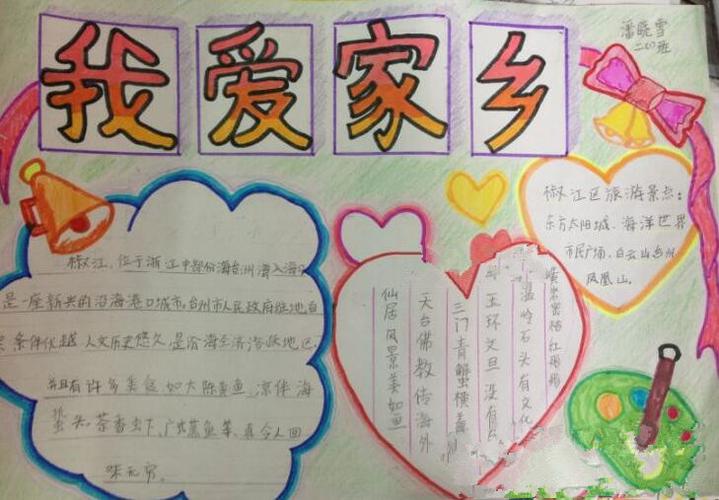 我爱家乡
潘晓雪
二（10）班
椒江，位于浙江中部份海台州湾入海
是一座新兴的沿海港口城市，台州市人民政府驻地，自
条件优越，人文历史悠久，是沿海经济
并且有许多美食，如大陈黄鱼、凉伴海
蜇头、茶香虾、广式蒸鱼等，真令人回
味无穷。
椒江区旅游景点：
东方太阳城、海洋世界
市民广场、白云山台州
凤凰山。
黄岩蜜桔红彤彤
温岭石头有文化
玉环文旦没有
三门青蟹横着
天台佛教传海外
仙居风景美如画